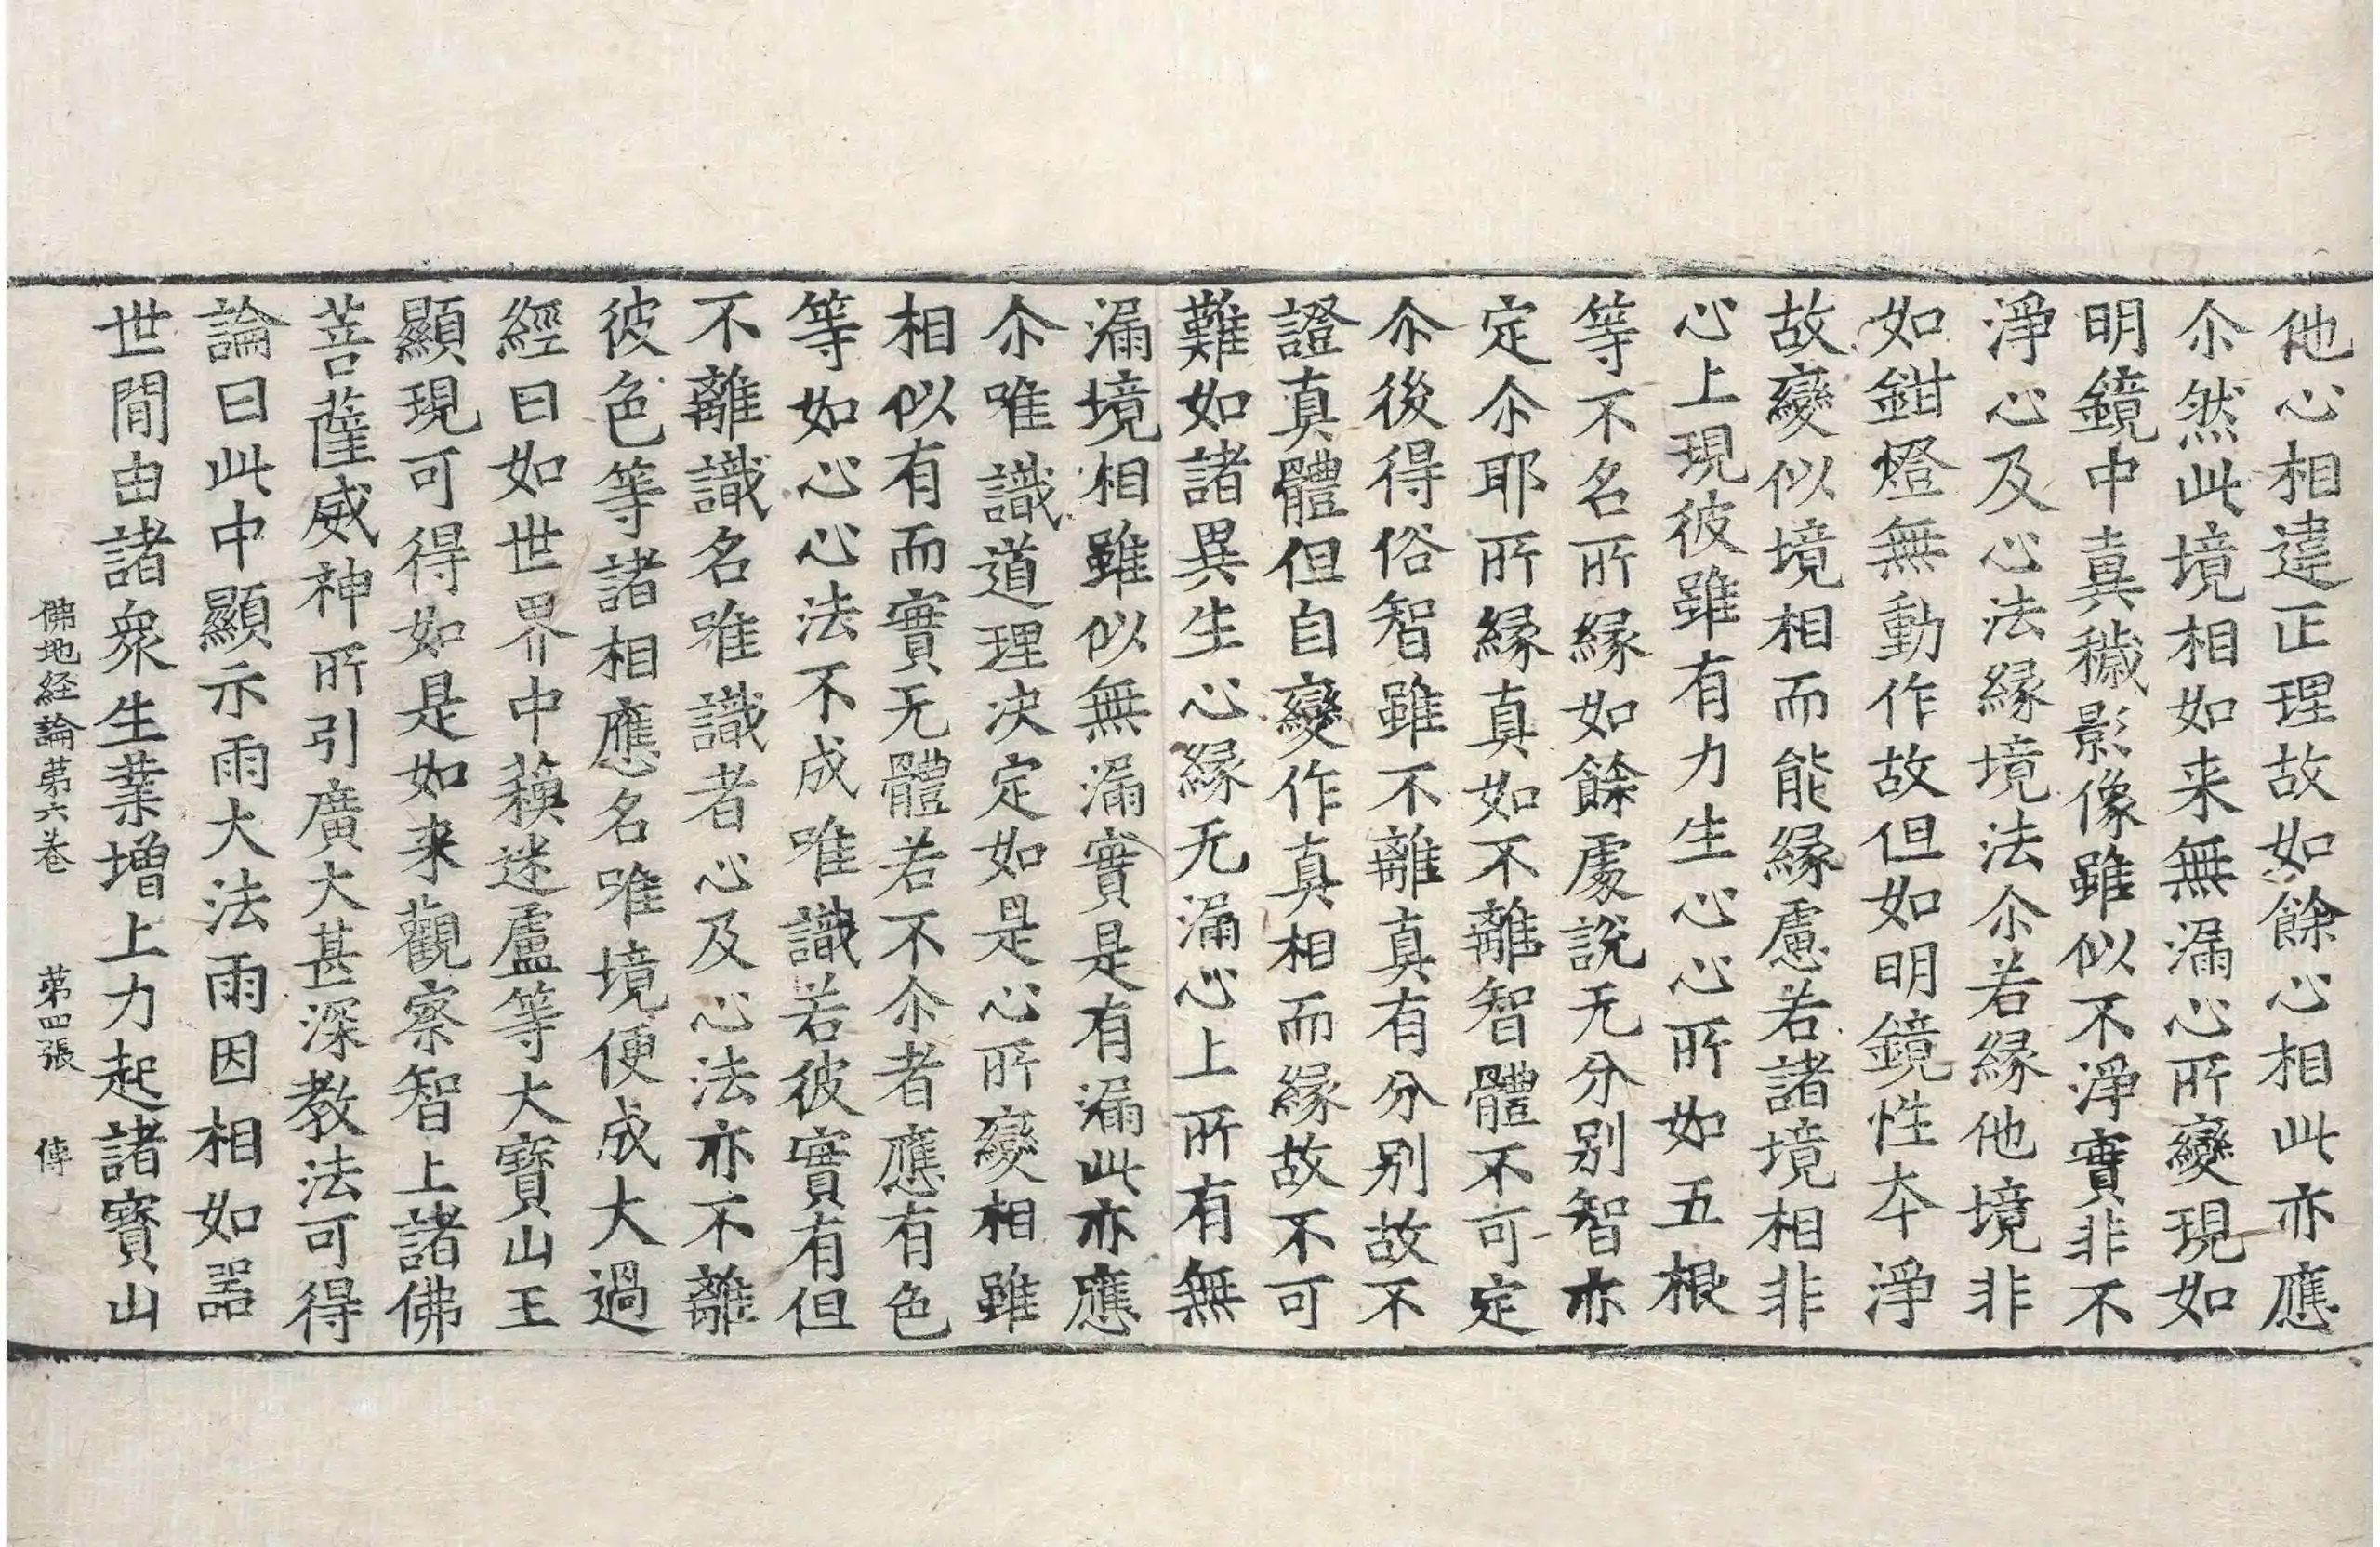 他心相違正理故如餘心相此亦應
尒然此境相如来無漏心所變現如
明鏡中真穢影像雖似不淨實非不
淨心及心法縁境法尒若縁他境非
如鉗燈無動作故但如明鏡性夲淨
故變似境相而能縁慮若諸境相非
心上現彼雖有力生心心所如五根
等不名所縁如餘處說无分别智亦
定尒耶所縁真如不離智體不可定
尒後得俗智雖不離真有分别故不
證真體但自變作真相而縁故不可
難如諸異生心縁无漏心上所有無
漏境相雖似無漏實是有漏此亦應
尒唯識道理决定如是心所變相雖
相似有而實无體若不尒者應有色
等如心心法不成唯識若彼實有但
不離識名唯識者心及心法亦不離
彼色等諸相應名唯境便成大過
經曰如世界中蘓迷盧等大寳山王
顯現可得如是如来觀察智上諸佛
菩薩威神所引廣大甚深教法可得
論曰此中顯示雨大法雨因相如噐
世間由諸衆生業增上力起諸寳山
佛地経論苐六卷 苐四張 傳